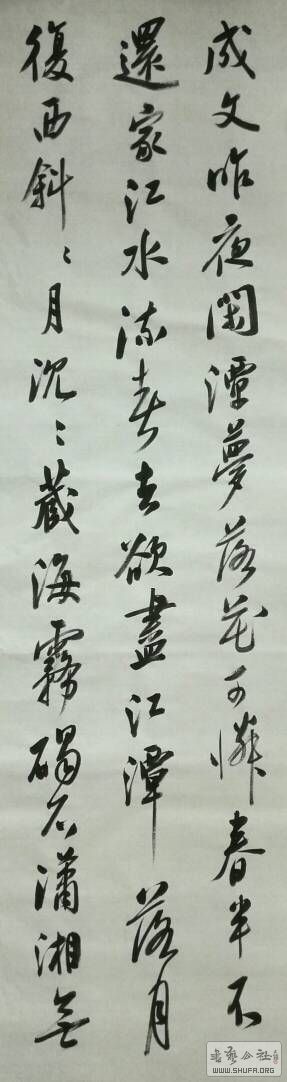 成文昨夜閑潭夢落花可憐春半不
還家江水流春去欲盡江潭落月
復西斜〻月沉〻藏海霧碣石瀟湘無
書藝公社
WWW.SHUFA.ORG